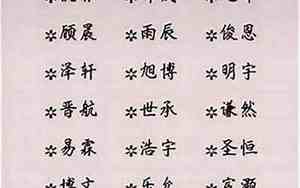 ✲顾晨 ✲雨辰 ✲俊恩
✲泽轩 ✲旭博 ✲明宇
✲晋航 ✲世承 ✲谦然
✲易霖 ✲浩宇 ✲圣恒
✲博文 ✲乐允